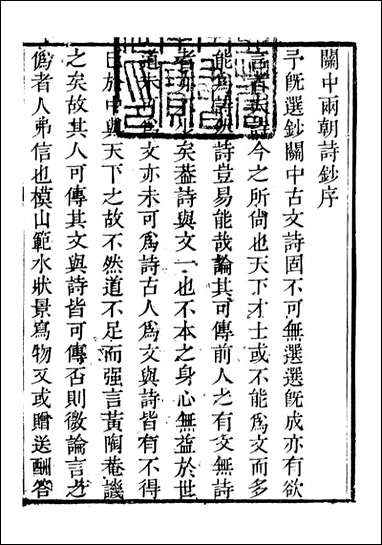 關中兩朝詩鈔序
予旣選鈔關中古文詩固不可無選選旣成亦有欲
言者夫詩今之所尙也天下才士或不能爲文而多
能爲詩然詩豈易能哉論其可傳前人之有文無詩
者亦矣葢詩與文一也不本之身心無益於世
道未文亦未可爲詩古人爲文與詩皆有不得
已於中與天下之故不然道不足而强言黃陶菴譏
之矣故其人可傳其文與詩皆可傳否則徵論言之
僞者人弗信也模山範水狀景寫物又或贈送酬答